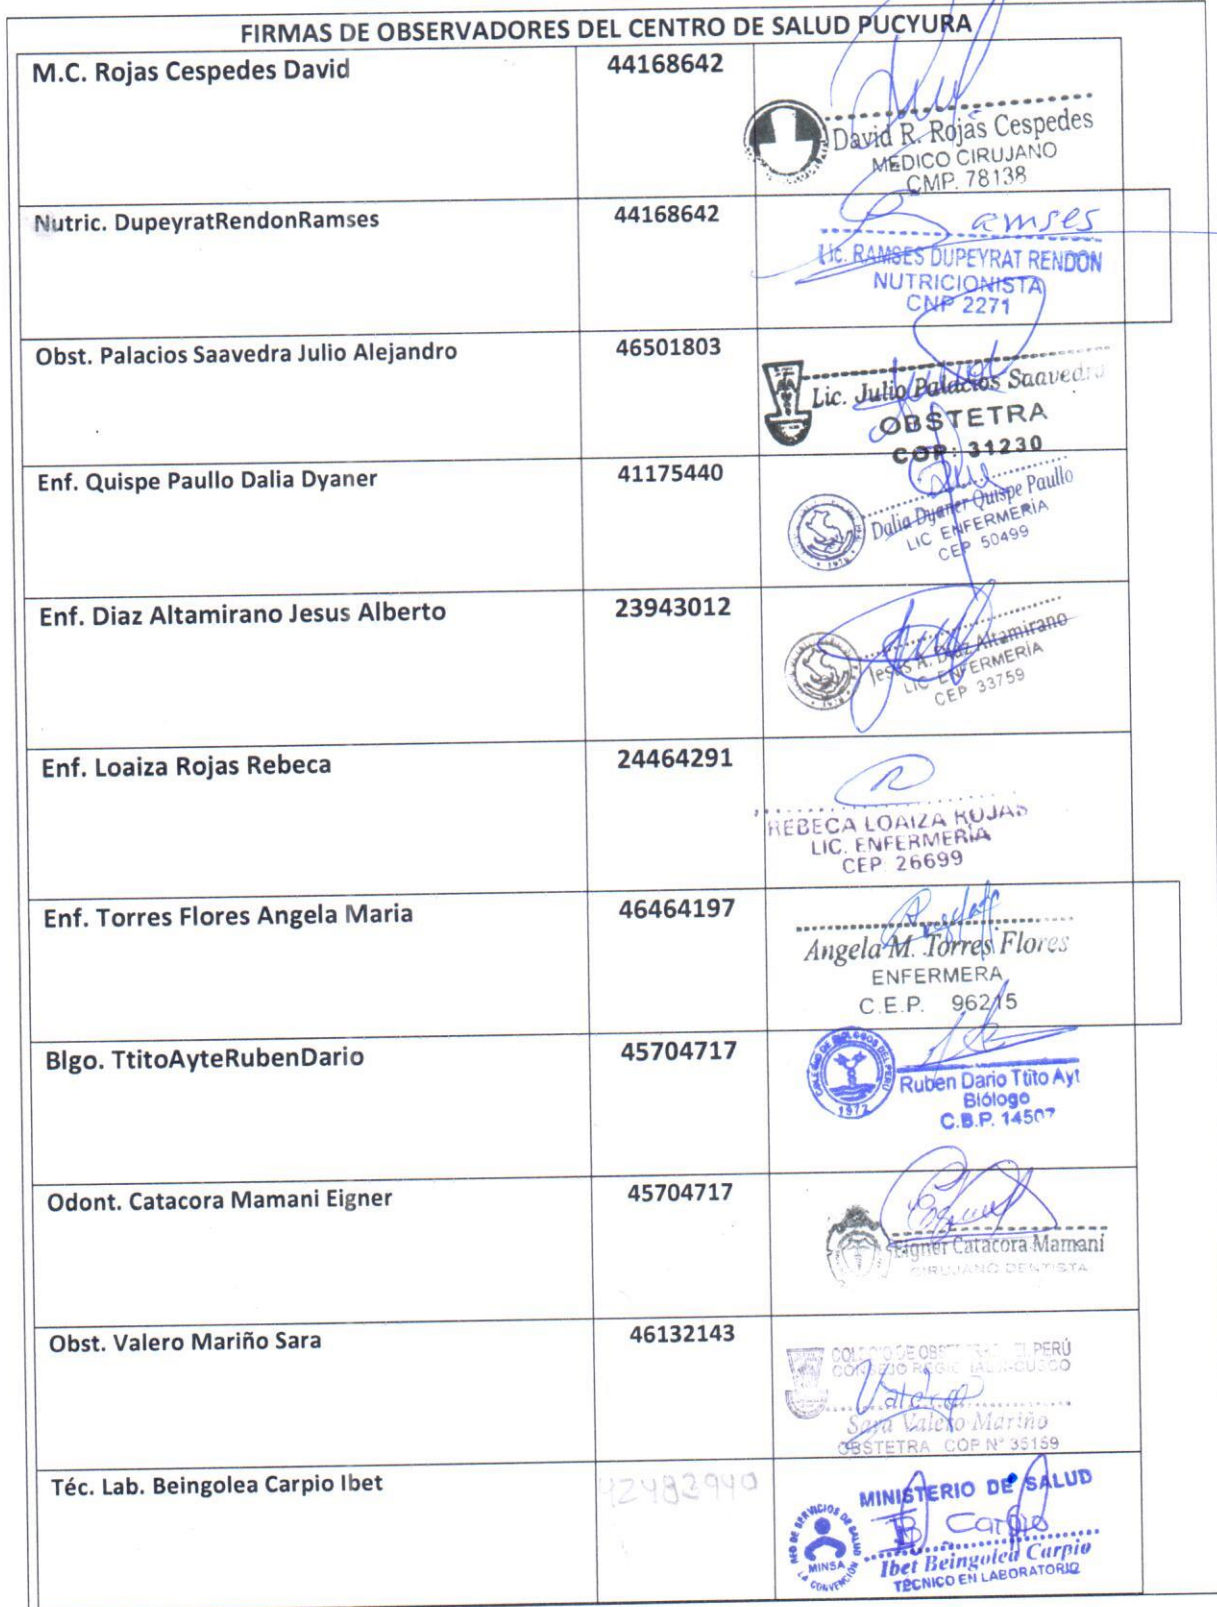 FIRMAS DE OBSERVADORES DEL CENTRO DE SALUD PUCYURA
M.C. Rojas Cespedes David 44168642
David R. Rojas Cespedes
MEDICO CIRUJANO
CMP. 78138
Nutric. DupeyratRendonRamses 44168642
Ramses
Lic. RAMSES DUPEYRAT RENDON
NUTRICIONISTA
CNP 2271
Obst. Palacios Saavedra Julio Alejandro 46501803
Lic. Julio Palacios Saavedra
OBSTETRA
COP: 31230
Enf. Quispe Paullo Dalia Dyaner 41175440
Dalia Dyaner Quispe Paullo
LIC ENFERMERÍA
CEP 50499
Enf. Diaz Altamirano Jesus Alberto 23943012
Jesus A. Diaz Altamirano
LIC ENFERMERÍA
CEP 33759
Enf. Loaiza Rojas Rebeca 24464291
REBECA LOAIZA ROJAS
LIC. ENFERMERÍA
CEP 26699
Enf. Torres Flores Angela Maria 46464197
Angela M. Torres Flores
ENFERMERA
C.E.P. 96215
Blgo. TtitoAyteRubenDario 45704717
COLEGIO DE BIOLOGOS DEL PERU
1972
Ruben Dario Ttito Ayt
Biólogo
C.B.P. 14507
Odont. Catacora Mamani Eigner 45704717
Eigner Catacora Mamani
CIRUJANO DENTISTA
Obst. Valero Mariño Sara 46132143
PERÚ
CONSEJO REGIONAL CUSCO
Valero
Sara Valero Mariño
OBSTETRA COP N° 35159
Téc. Lab. Beingolea Carpio Ibet 42482940
MINISTERIO DE SALUD
RED DE SERVICIOS DE SALUD
MINSA
LA CONVENCIÓN
Carpio
Ibet Beingolea Carpio
TECNICO EN LABORATORIO